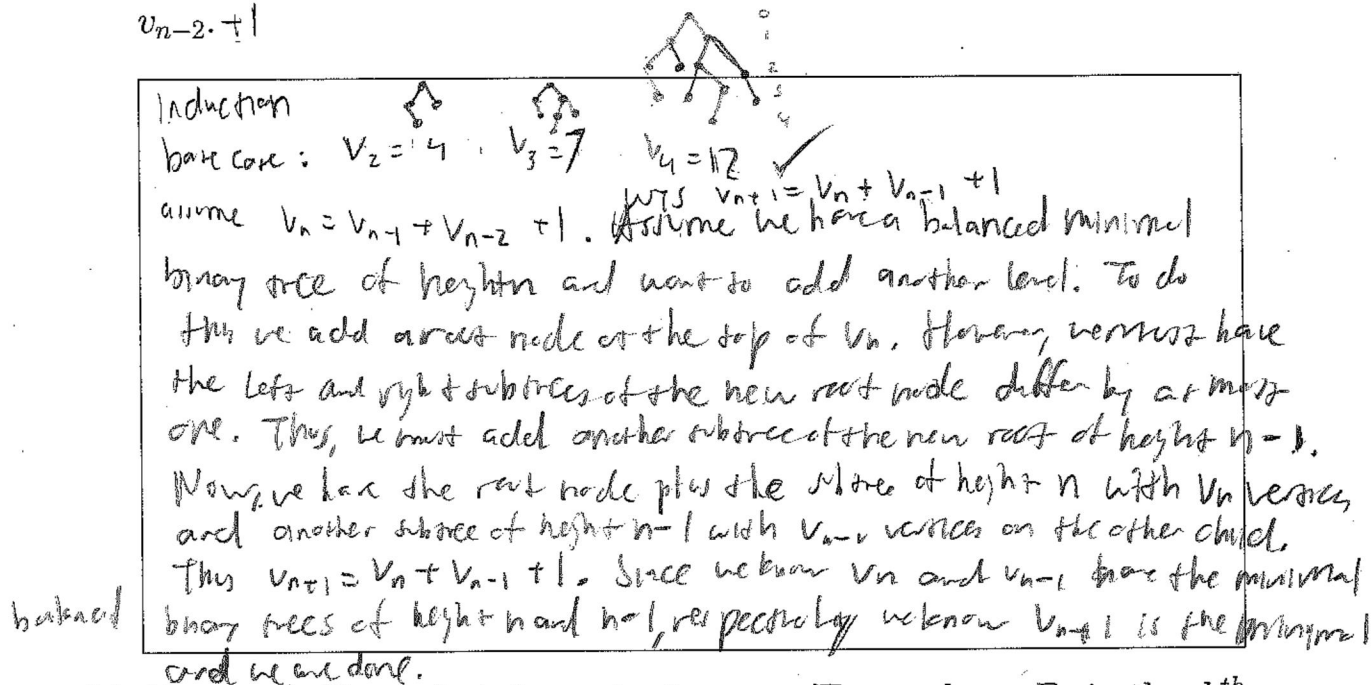 v_{n-2}. +1
0
1
2
3
4
Induction
base case: V_2 = 4, V_3 = 7 V_4 = 12 ✓
WTS v_{n+1} = V_n + V_{n-1} + 1
assume V_n = V_{n-1} + V_{n-2} + 1. Assume we have a balanced minimal
binary tree of height n and want to add another level. To do
this we add a root node at the top of V_n. However, we must have
the left and right subtrees of the new root node differ by at most
one. Thus, we must add another subtree of the new root of height n-1.
Now, we have the root node plus the subtree of height n with V_n vertices
and another subtree of height n-1 with V_{n-1} vertices on the other child.
Thus v_{n+1} = V_n + V_{n-1} + 1. Since we know V_n and V_{n-1} have the minimal
balanced
binary trees of height n and n-1, respectively we know V_{n+1} is the minimal
and we are done.